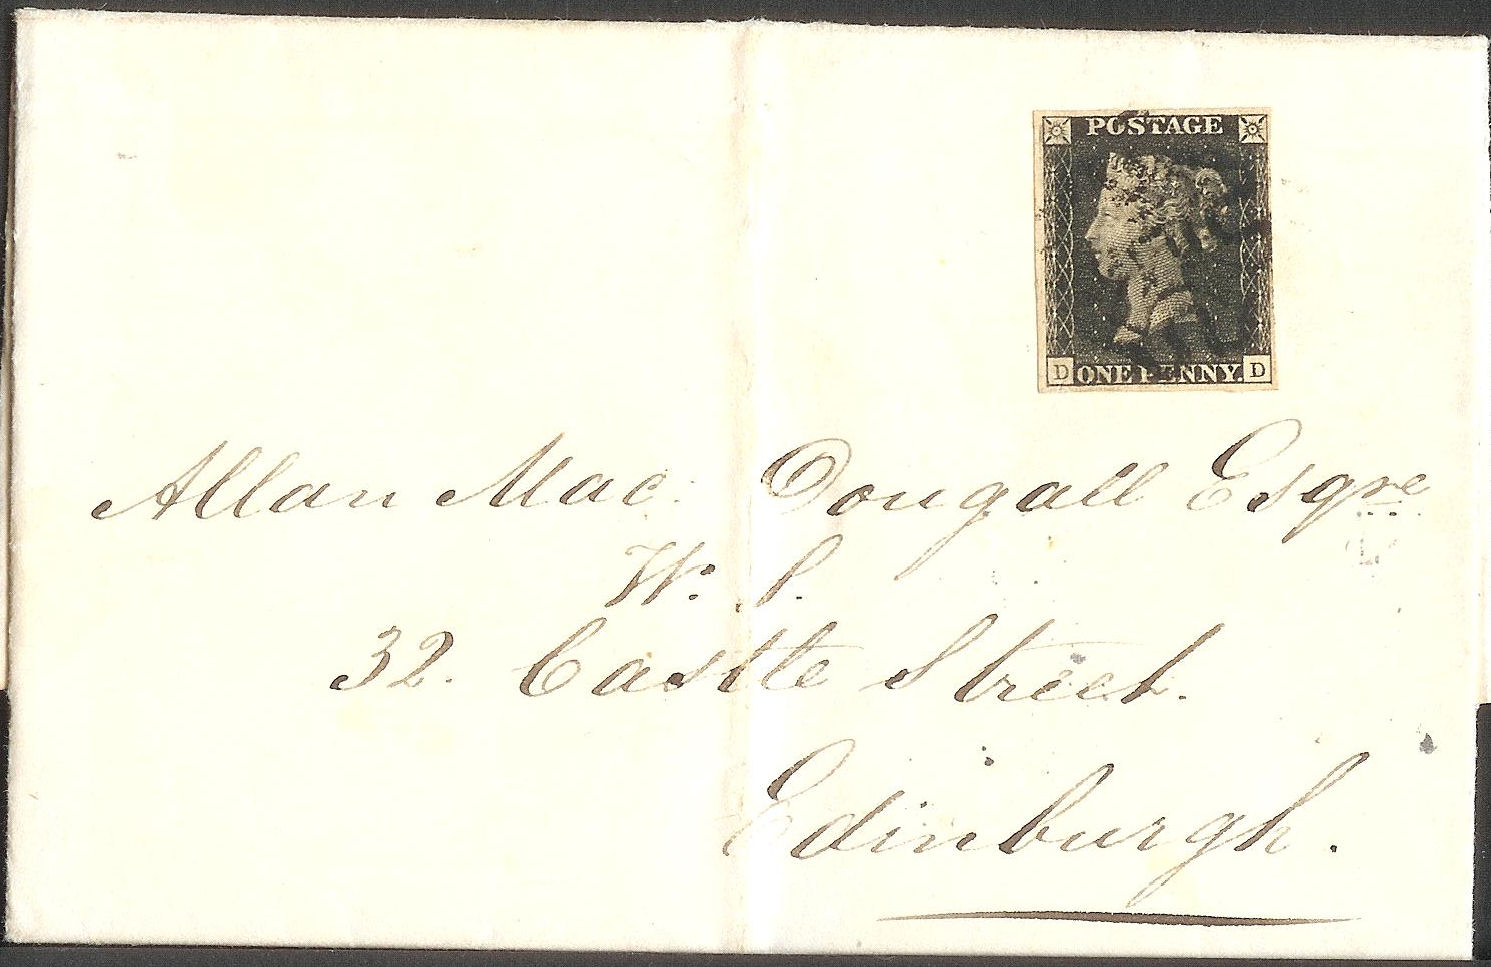 POSTAGE
D ONE PENNY. D
Allan Mac Dougall Esqre
W: S.
32. Castle Street.
Edinburgh.